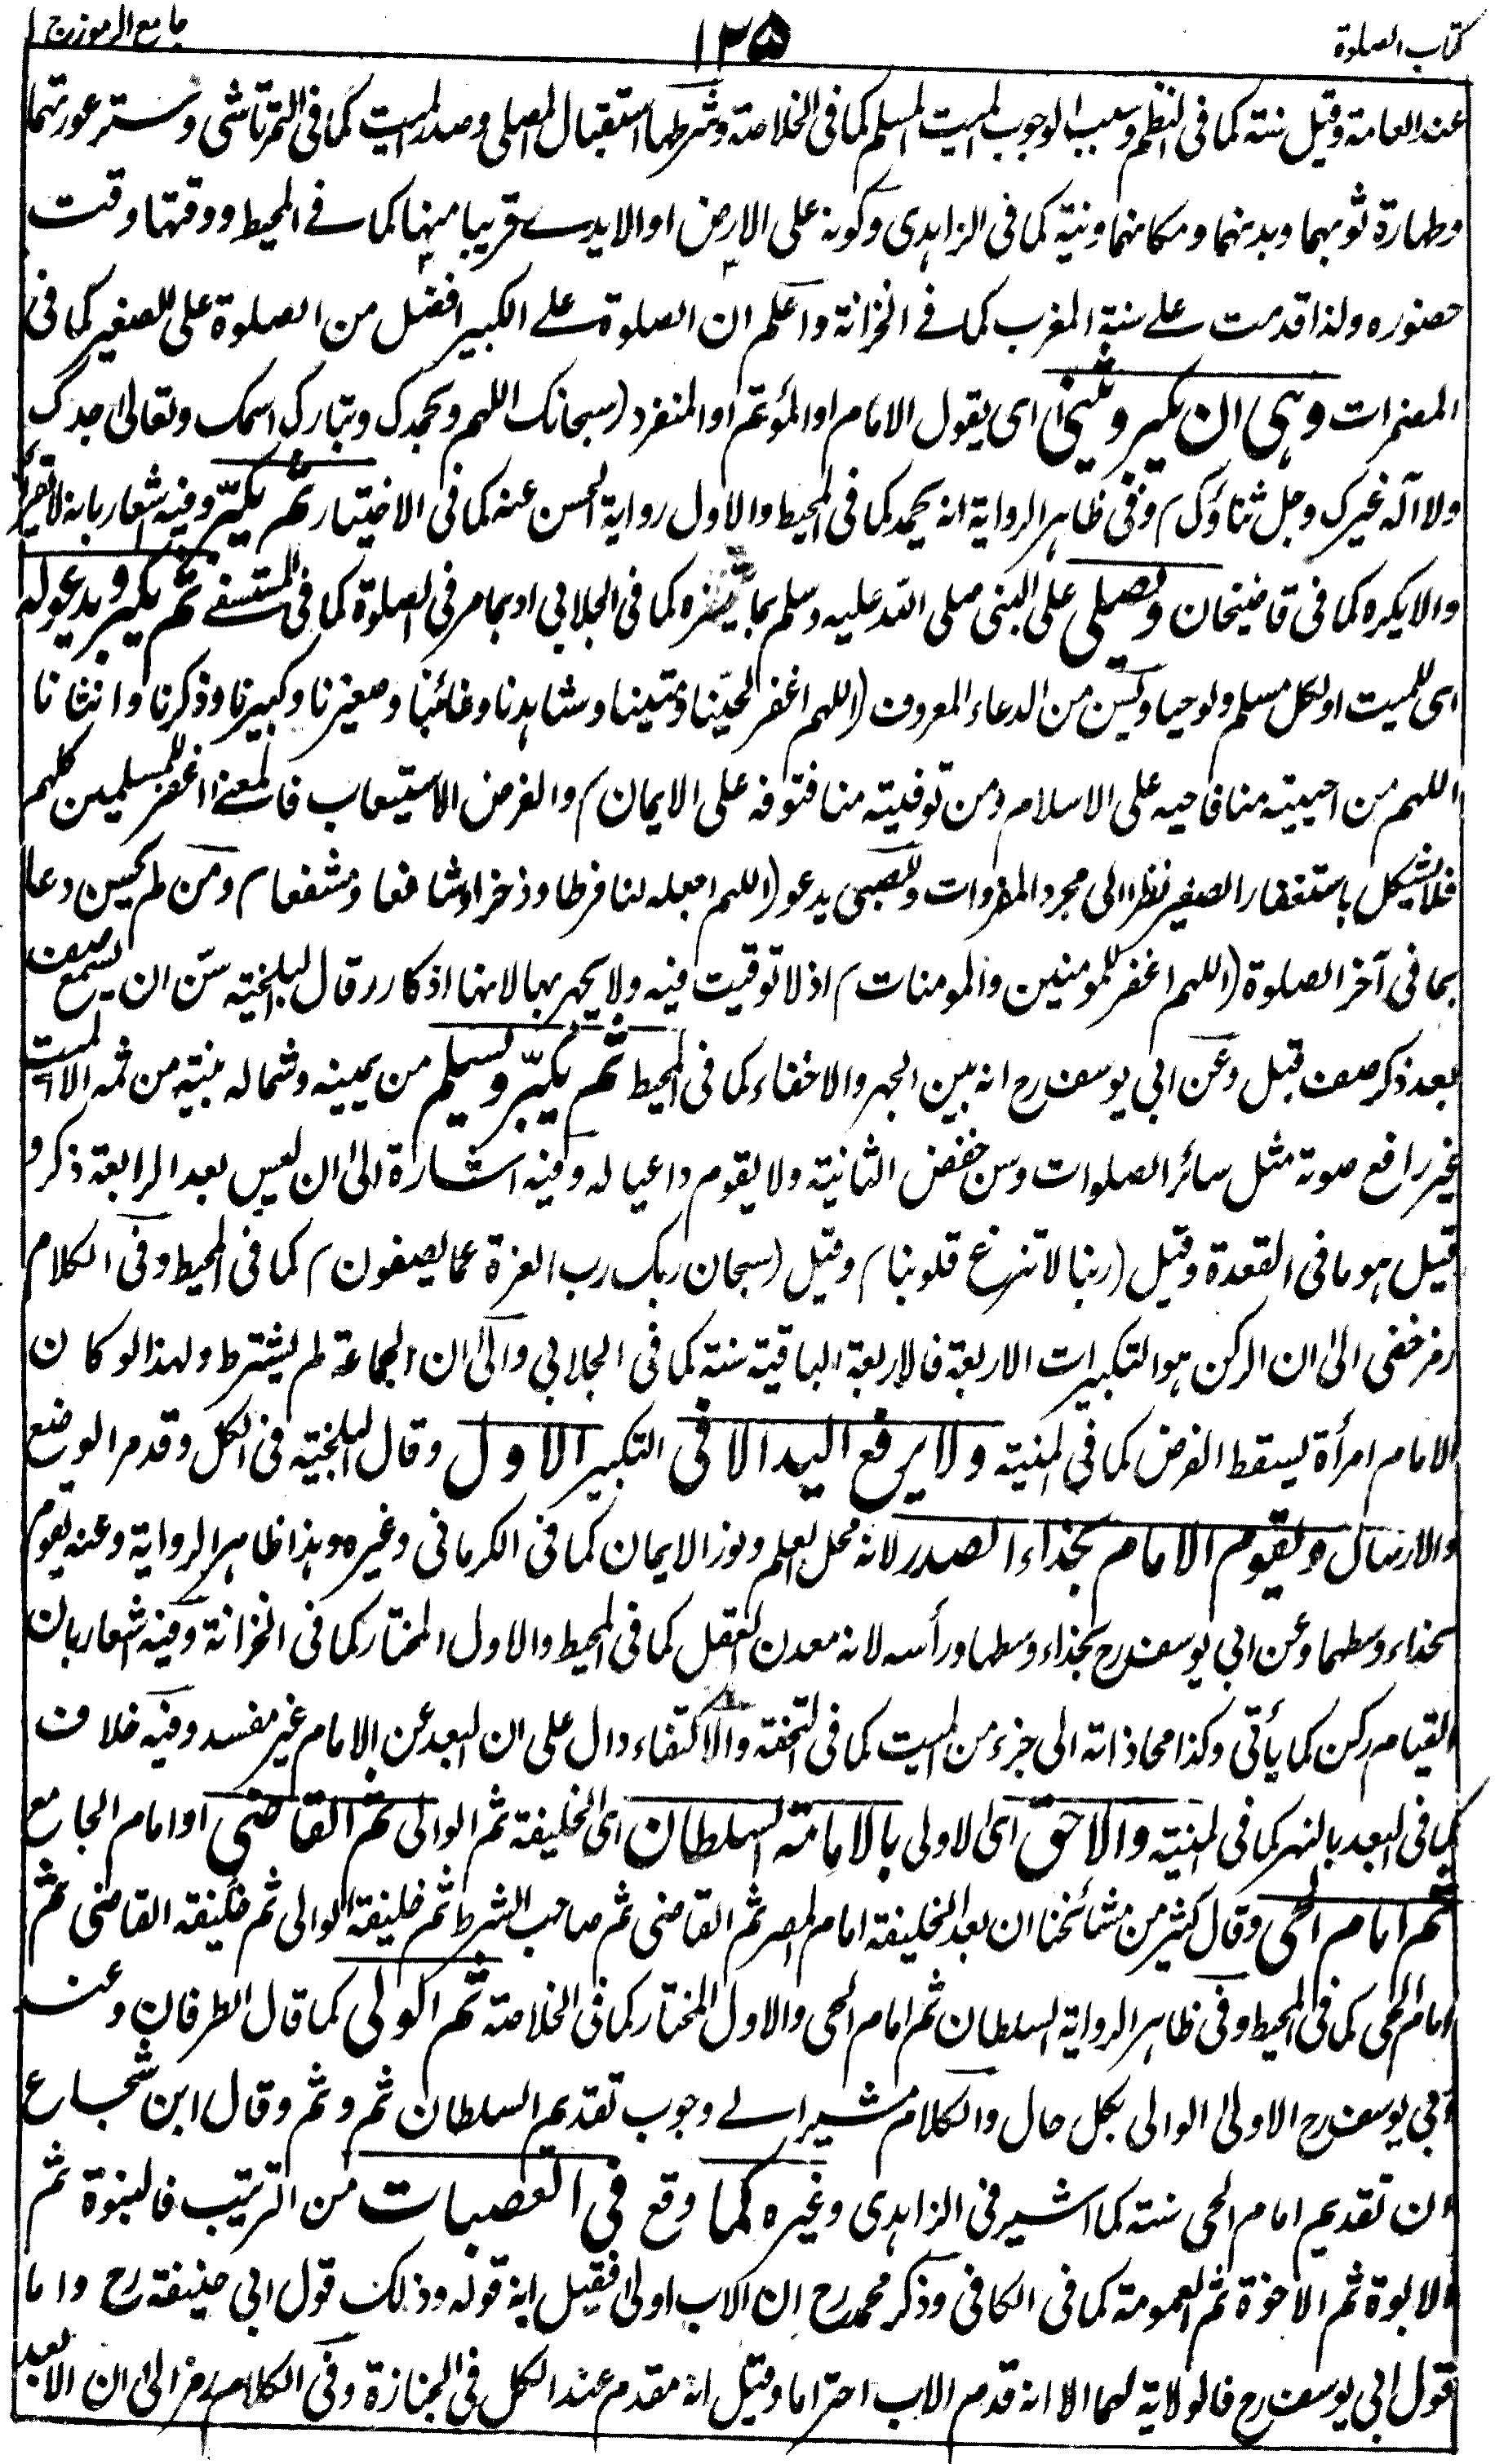 كتاب الصلوة
١٢٥
جامع الرموز ج ١
عند العامة وقيل سنته كما فى النظم وسبب الوجوب الميت المسلم كما فى الخلاصة وشرطها استقبال المصلى وصدر الميت كما فى التمرتاشى وستر عورتهما
وطهارة ثوبهما وبدنهما ومكانهما ونية كما فى الزاهدى وكونه على الارض او الايدے قريبا منها كما فے المحيط ووقتها وقت
حضوره ولذا قدمت علے سنة المغرب كما فے الخزانة واعلم ان الصلوة علے الكبير افضل من الصلوة على الصغير كما فى
المضمرات وهى ان يكبر ويثنى اى يقول الامام او المؤتم او المنفرد (سبحانك اللهم وبحمدك وتبارك اسمك وتعالى جدك
ولا آله غيرك وجل ثناؤك) وفى ظاهر الرواية انه يحمد كما فى المحيط والاول رواية الحسن عنه كما فى الاختيار ثم يكبّر وفيه اشعار بانه لا تقرأ
والا يكره كما فى قاضيخان ويصلى على النبى صلى الله عليه وسلم بما يحضره كما فى الجلابي او بما مر فى الصلوة كما فى المستصفے ثم يكبر ويدعو له
اى للميت او لكل مسلم ولو حيا ويسن من الدعاء المعروف (اللهم اغفر لحيّنا وميتنا وشاهدنا وغائبنا وصغيرنا وكبيرنا وذكرنا وانثانا
اللهم من احييته منا فاحيه على الاسلام ومن توفيته منا فتوفه على الايمان) والغرض الاستيعاب فالمعنے اغفر للمسلمين كلهم
فلا يشكل باستغفار الصغير نظرا الى مجرد المفردات وللصبى يدعو (اللهم اجعله لنا فرطا وذخرا وشافعا ومشفعا) ومن لم يحسن دعا
بما فى آخر الصلوة (اللهم اغفر للمومنين والمومنات) اذ لا توقيت فيه ولا يجهر بها لانها اذكار وقال البلخية سن ان يسمع صف
بعد ذكر صف قبل وعن ابي يوسف رح انه بين الجهر والاخفاء كما فى المحيط ثم يكبّر ويسلم من يمينه وشماله بنية من ثمه الا الميت
غير رافع صوته مثل سائر الصلوات وسن خفض الثانية ولا يقوم داعيا له وفيه اشارة الى ان ليس بعد الرابعة ذكر و
قيل هو ما فى القعدة وقيل (ربنا لا تزغ قلوبنا) وقيل (سبحان ربك رب العزة عما يصفون) كما فى المحيط وفى الكلام
رمز خفى الى ان الركن هو التكبيرات الاربعة فالاربعة الباقية سنة كما فى الجلابي والى ان الجماعة لم يشترط ولهذا لو كان
الامام امرأة يسقط الفرض كما فى المنية ولا يرفع اليد الا فى التكبير الاول وقال البلخية فى الكل وقدم الوضع
والارسال ويقوم الامام بحذاء الصدر لانه محل العلم ونور الايمان كما فى الكرمانى وغيره وهذا ظاهر الرواية وعنه يقوم
بحذاء وسطهما وعن ابي يوسف رح بحذاء وسطها ورأسه لانه معدن العقل كما فى المحيط والاول المختار كما فى الخزانة وفيه اشعار بان
القيام ركن كما يأتى وكذا محاذاته الى جزء من الميت كما فى التحفة والاكتفاء دال على ان البعد عن الامام غير مفسد وفيه خلاف
كما فى البعد بالنهر كما فى المنية والاحق اى الاولى بالامامة السلطان اى الخليفة ثم الوالى ثم القاضى او امام الجامع
ثم امام الحى وقال كثير من مشائخنا ان بعد الخليفة امام المصر ثم القاضى ثم صاحب الشرط ثم خليفة الوالى ثم خليفة القاضى ثم
امام الحى كما فى المحيط وفى ظاهر الرواية السلطان ثم امام الحى والاول المختار كما فى الخلاصة ثم الولى كما قال الطرفان وعند
ابي يوسف رح الاولى الوالى بكل حال والكلام مشير الے وجوب تقديم السلطان ثم وثم وقال ابن شجاع
ان تقديم امام الحى سنة كما اشير فى الزاهدى وغيره كما وقع فى العصبات من الترتيب فالبنوة ثم
الابوة ثم الاخوة ثم العمومة كما فى الكافى وذكر محمد رح ان الاب اولى فقيل انه قوله وذلك قول ابى حنيفة رح واما
قول ابي يوسف رح فالولاية لهما الا انه قدم الاب احتراما وقيل انه مقدم عند الكل فى الجنازة وفى الكلام رمز الى ان الابعد